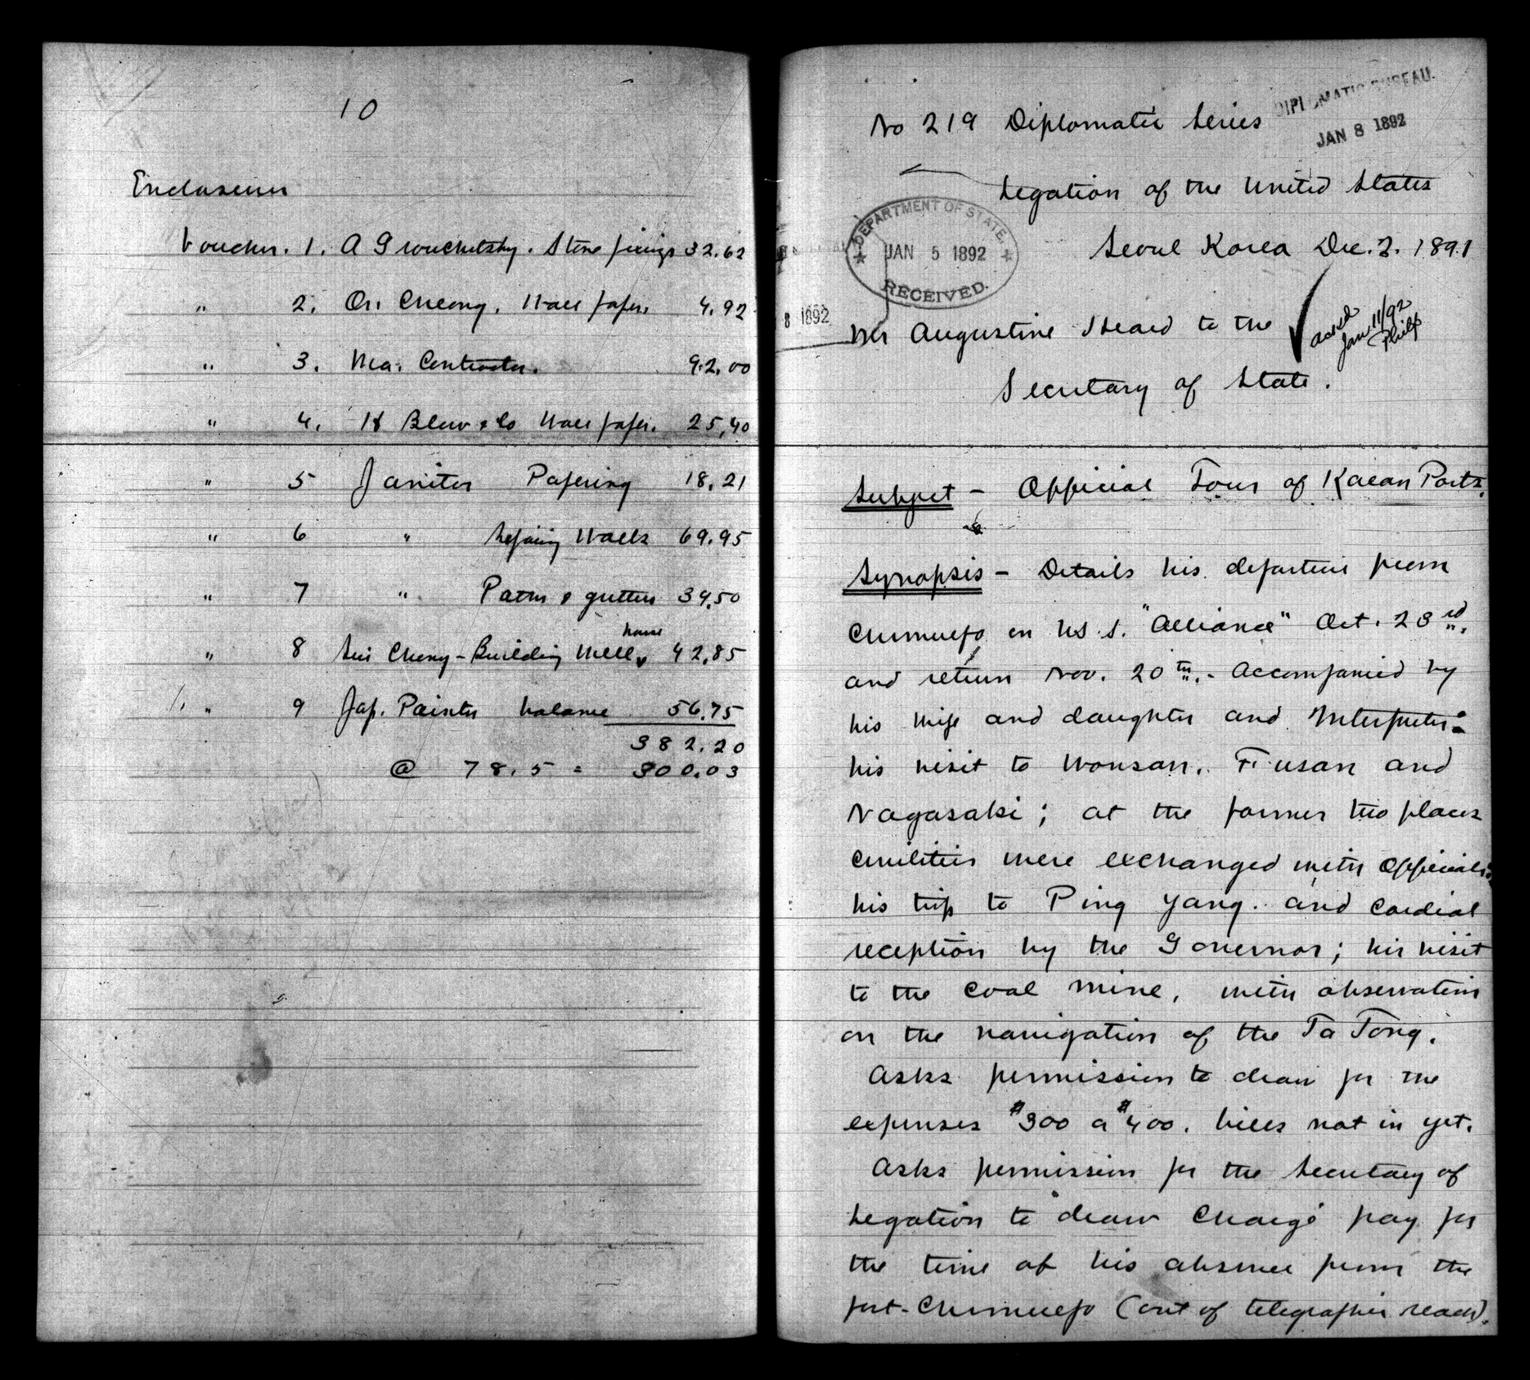 10
Enclosures
Voucher. 1. A Gorouchetsky. Stove fixings 32.62
" 2. On Cheong. Wall paper. 4.92
" 3. Ma. Contractor. 92.00
" 4. & Co Wall paper. 25,40
" 5 Janitor Papering 18.21
" 6 " Repairing Walls 69.95
" 7 " Paths & gutters 39,50
" 8 Sui Cheong - Building Well house 42.85
" 9 Jap. Painter balance 56.75
382.20
@ 78.5 = 300.03
No 219 Diplomatic Series
DIPLOMATIC BUREAU.
JAN 8 1892
Legation of the United States
Seoul Korea Dec. 3. 1891
DEPARTMENT OF STATE.
JAN 5 1892
RECEIVED.
8 1892
Mr Augustine Heard to the
Secretary of State.
ackd
Jan 11/92
Philip
Subject - Official Tour of Korean Ports.
Synopsis - Details his departure from
Chemulpo on U.S.S. "Alliance" Oct. 23rd,
and return Nov. 20th. - accompanied by
his wife and daughter and Interpreter:
his visit to Wonsan, Fusan and
Nagasaki; at the former two places
civilities were exchanged with officials:
his trip to Ping Yang. and cordial
reception by the Governor; his visit
to the coal mine, with observations
on the navigation of the Ta Tong.
Asks permission to draw for the
expenses $300 a $400. bills not in yet.
Asks permission for the Secretary of
Legation to draw Chargé pay for
the time of his absence from the
port. Chemulpo (out of telegraphic reach).